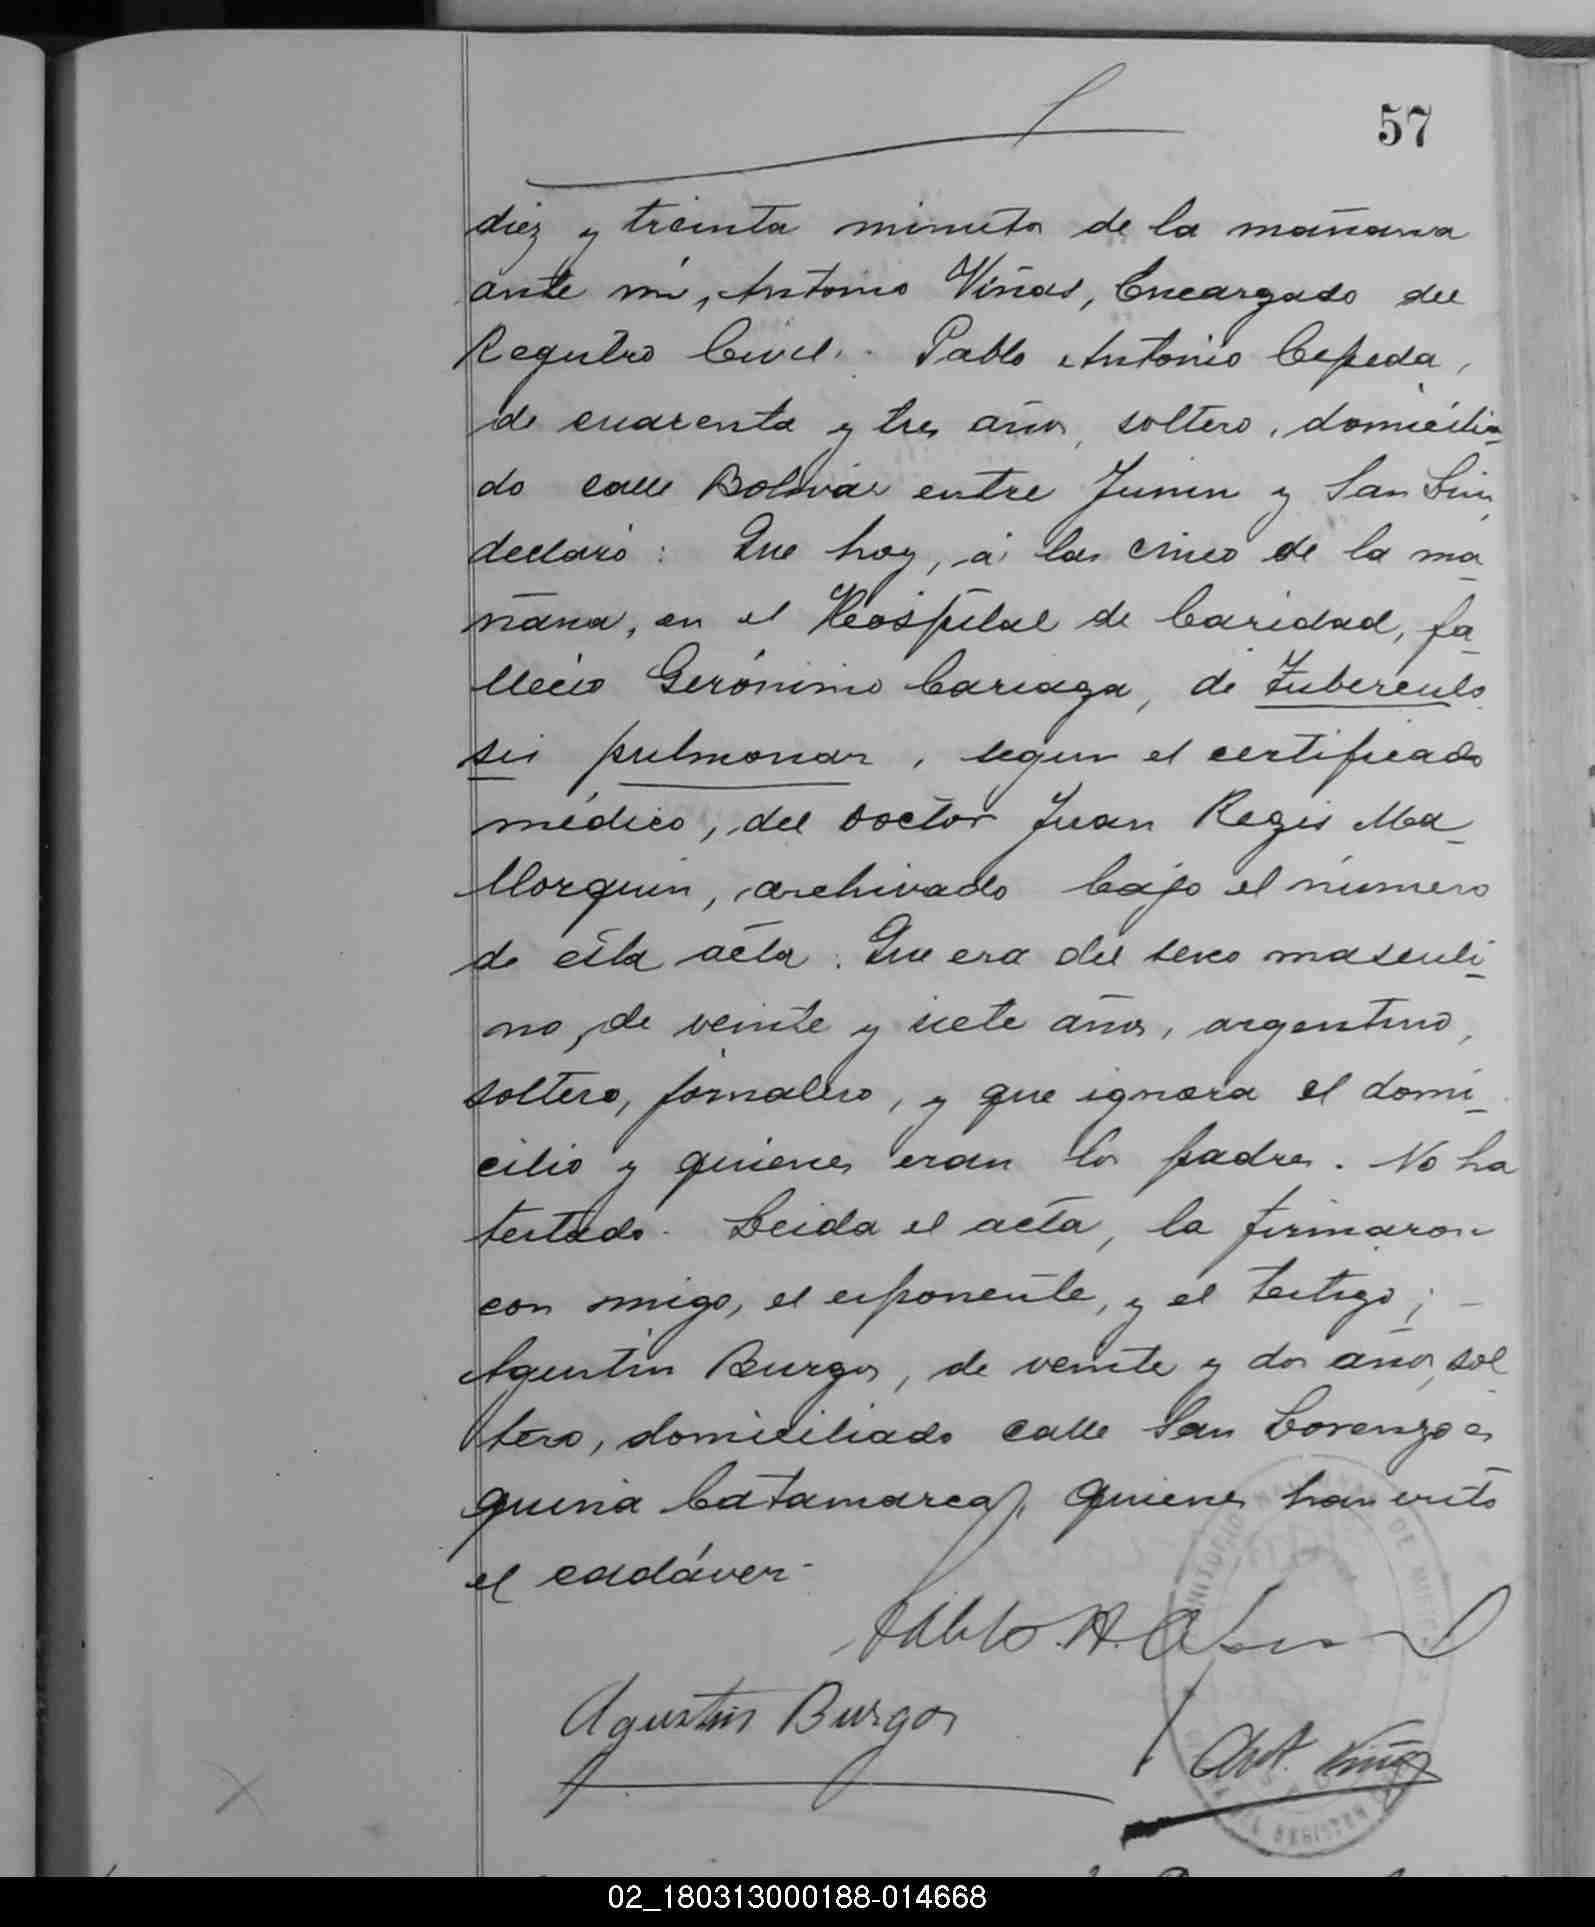 57
diez y treinta minutos de la mañana
ante mí, Antonio Viñas, Encargado del
Registro Civil: Pablo Antonio Cepeda,
de cuarenta y tres años, soltero, domicilia-
do calle Bolivar entre Junin y San Luis,
declaró: Que hoy, á las cinco de la ma-
ñana, en el Hospital de Caridad, fa-
lleció Gerónimo Cariaga, de Tuberculo-
sis pulmonar, segun el certificado
médico, del Doctor Juan Regis Ma-
llorquin, archivado bajo el número
de esta acta. Que era del sexo masculi-
no, de veinte y siete años, argentino,
soltero, jornalero, y que ignora el domi-
cilio y quienes eran los padres. No ha
testado. Leida el acta, la firmaron
con migo, el exponente, y el testigo;
Agustin Burgos, de veinte y dos años, sol-
tero, domiciliado calle San Lorenzo es
quina Catamarca, quienes han visto
el cadáver.
Pablo A.
Agustin Burgos
Ant. Viñas
DEL REGISTRO
02_180313000188-014668